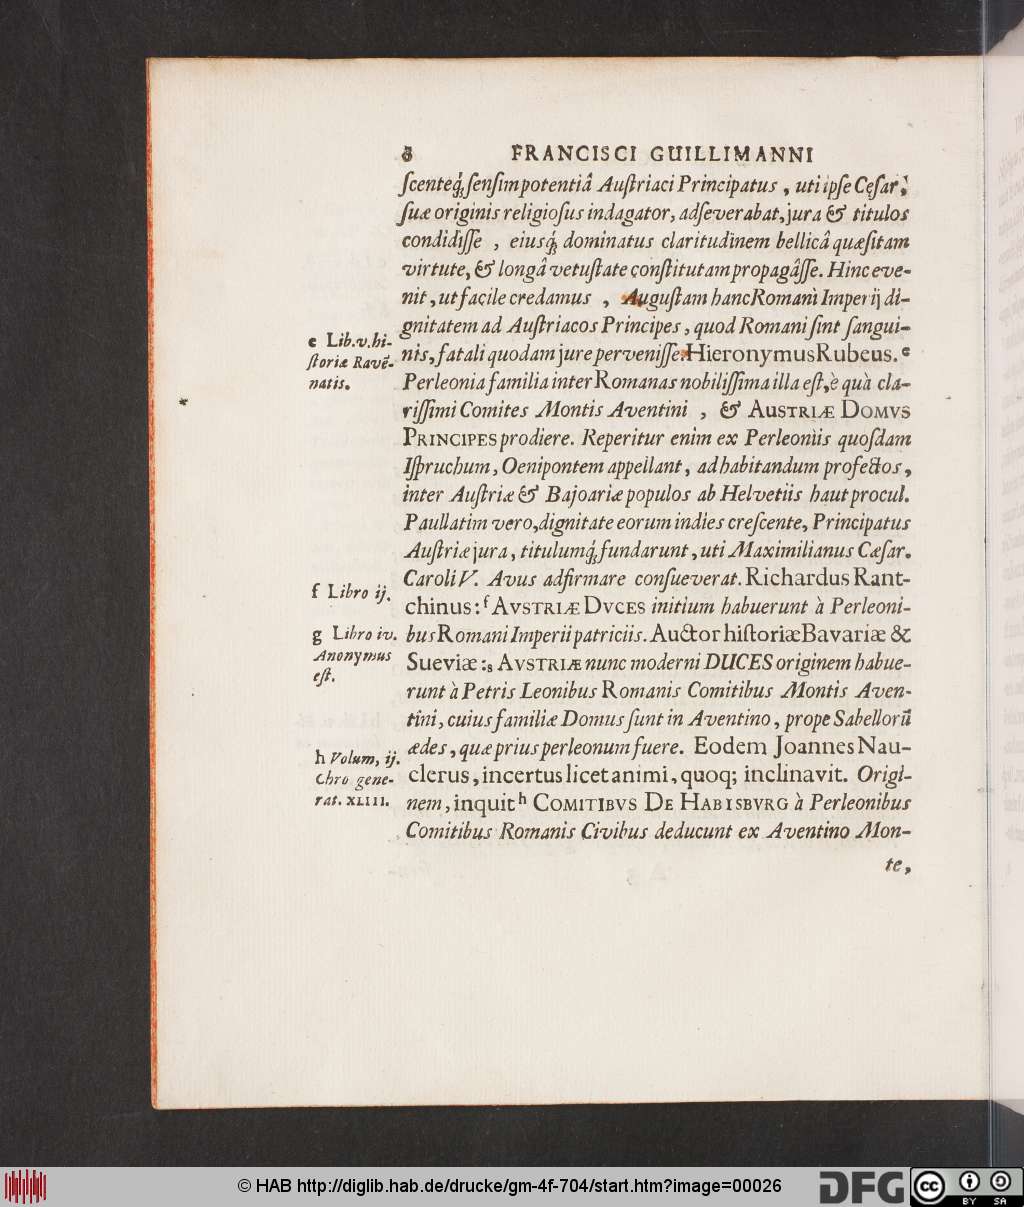 8 FRANCISCI GUILLIMANNI
ſcenteq́; ſenſim potentiâ Auſtriaci Principatus, uti ipſe Cęſar,
ſuæ originis religioſus indagator, adſeverabat, jura & titulos
condidiſſe, eiusq́; dominatus claritudinem bellicâ quæſitam
virtute, & longâ vetuſtate conſtitutam propagâſſe. Hinc eve-
nit, ut facile credamus, Auguſtam hanc Romani Imperij di-
gnitatem ad Auſtriacos Principes, quod Romani ſint ſangui-
nis, fatali quodam jure perveniſſe. Hieronymus Rubeus. e
Perleonia familia inter Romanas nobiliſſima illa eſt, è quà cla-
riſſimi Comites Montis Aventini, & AUSTRIÆ DOMVS
PRINCIPES prodiere. Reperitur enim ex Perleoniis quoſdam
Iſpruchum, Oenipontem appellant, ad habitandum profectos,
inter Auſtriæ & Bajoariæ populos ab Helvetiis haut procul.
Paullatim vero, dignitate eorum indies creſcente, Principatus
Auſtriæ jura, titulumq́; fundarunt, uti Maximilianus Cæſar.
Caroli V. Avus adfirmare conſueverat. Richardus Rant-
chinus: f AVSTRIÆ DVCES initium habuerunt à Perleoni-
bus Romani Imperii patriciis. Auctor hiſtoriæ Bavariæ &
Sueviæ: g AVSTRIÆ nunc moderni DUCES originem habue-
runt à Petris Leonibus Romanis Comitibus Montis Aven-
tini, cuius familiæ Domus ſunt in Aventino, prope Sabellorū
ædes, quæ prius perleonum fuere. Eodem Joannes Nau-
clerus, incertus licet animi, quoq; inclinavit. Origi-
nem, inquit h COMITIBVS DE HABISBVRG à Perleonibus
Comitibus Romanis Civibus deducunt ex Aventino Mon-
te,
e Lib. v. hi-
ſtoriæ Ravē-
natis.
f Libro ij.
g Libro iv.
Anonymus
eſt.
h Volum, ij.
Chro gene-
rat. XLIII.
© HAB http://diglib.hab.de/drucke/gm-4f-704/start.htm?image=00026
DFG
cc BY SA